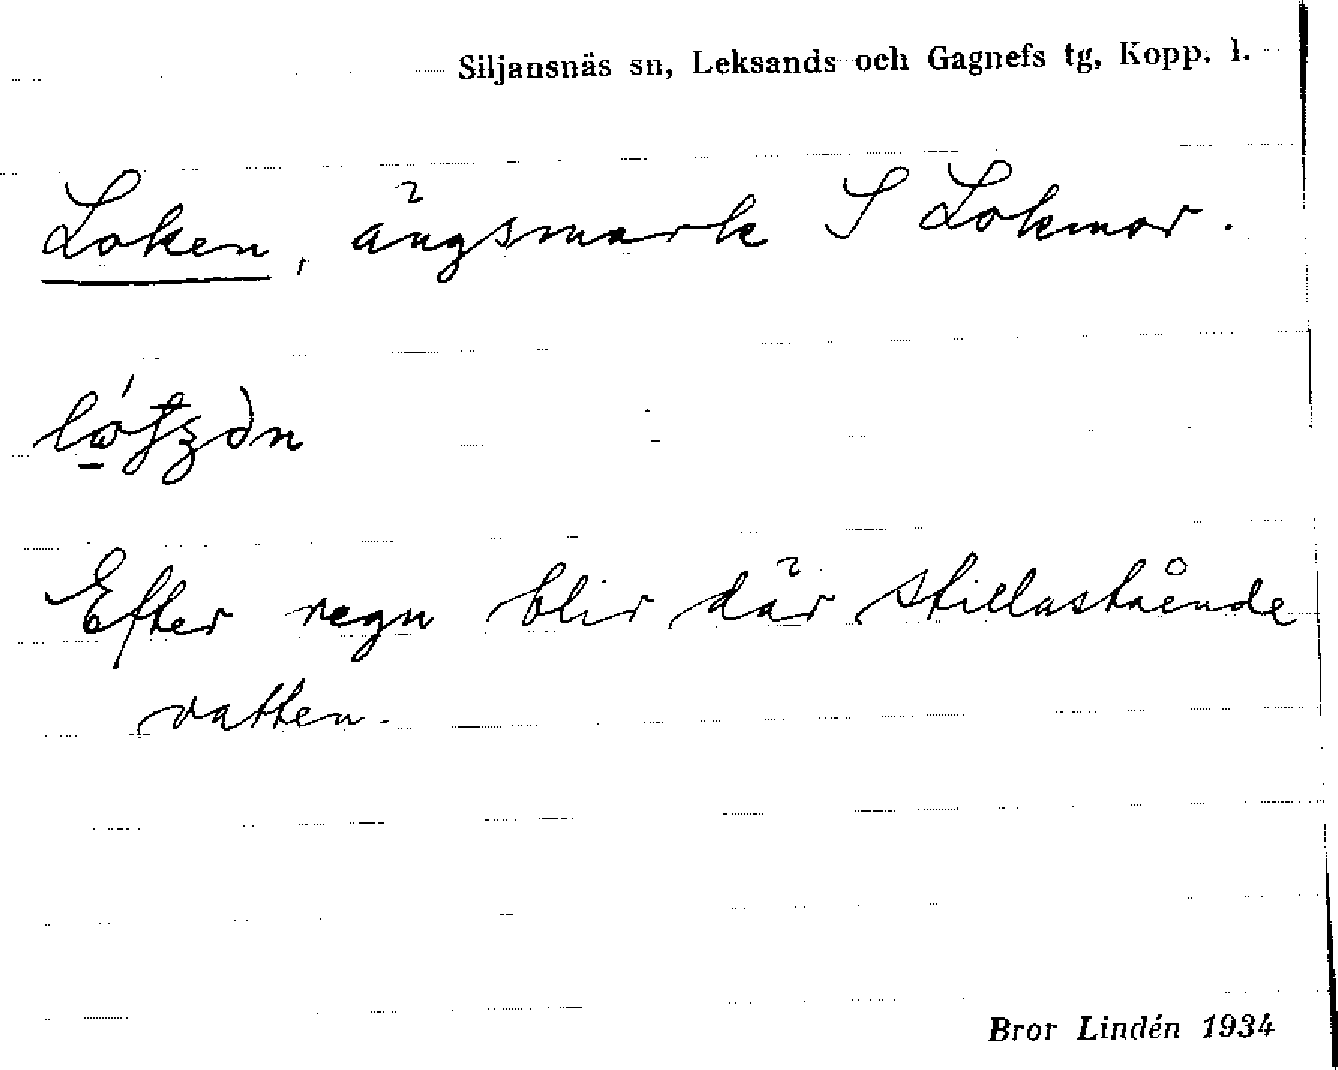 Siljansnäs sn, Leksands och Gagnefs tg, Kopp. l.
Loken, ängsmark S Lokmor.
Efter regn blir där stillastående
vatten.
Bror Lindén 1934